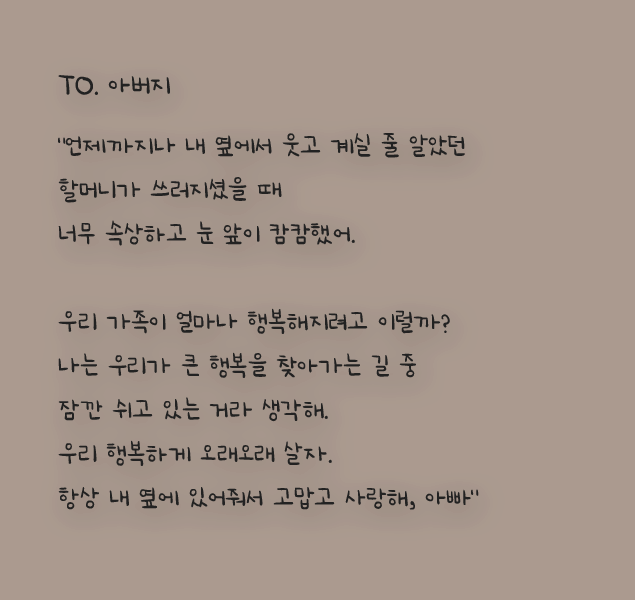 TO. 아버지
"언제까지나 내 옆에서 웃고 계실 줄 알았던
할머니가 쓰러지셨을 때
너무 속상하고 눈 앞이 캄캄했어.
우리 가족이 얼마나 행복해지려고 이럴까?
나는 우리가 큰 행복을 찾아가는 길 중
잠깐 쉬고 있는 거라 생각해.
우리 행복하게 오래오래 살자.
항상 내 옆에 있어줘서 고맙고 사랑해, 아빠"